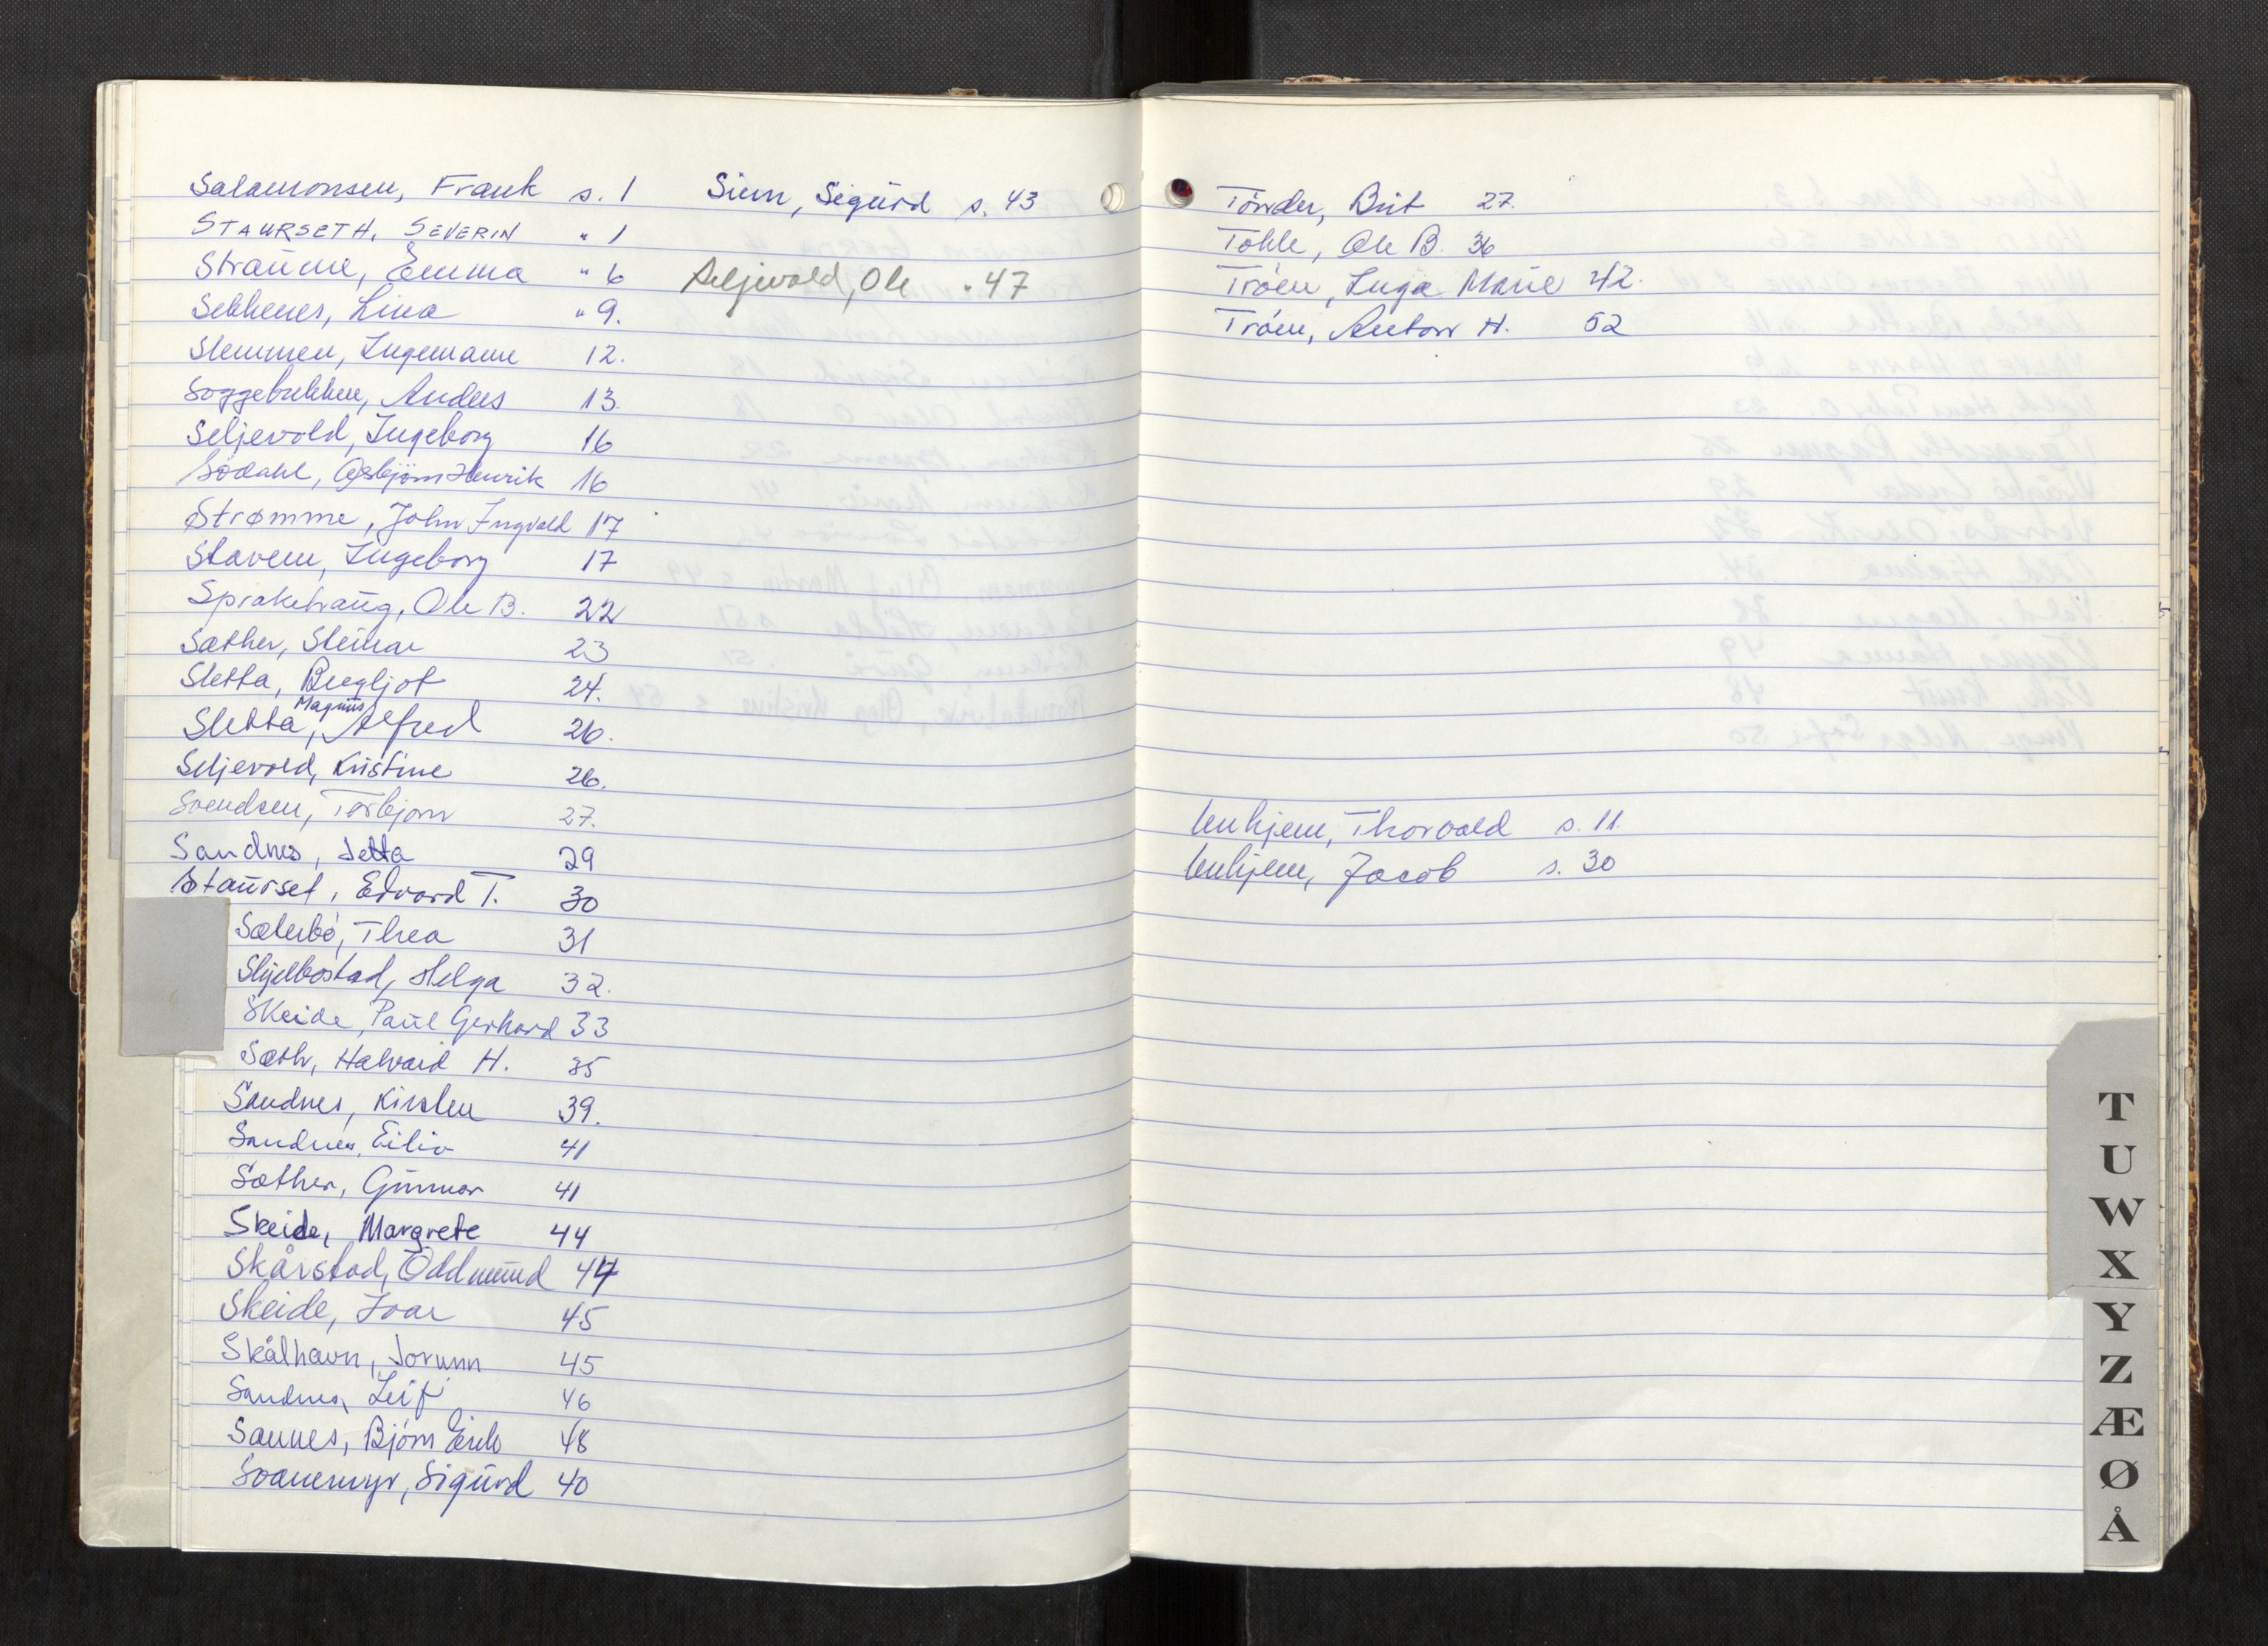 Salamonsen, Frank s. 1
STAURSETH, SEVERIN " 1
Straume, Emma " 6
Sekkenes, Lina " 9.
Slemmen, Ingemann 12.
Soggebakken, Anders 13.
Seljevold, Ingeborg 16
Sødahl, Asbjørn Henrik 16
Strømme, John Ingvald 17
Stavem, Ingeborg 17
Sprakehaug, Ole B. 22
Sæther, Steinar 23
Sletta, Bergljot 24.
Magnus
Sletta, Alfred 26.
Seljevold, Kristine 26.
Svendsen, Torbjørn 27.
Sandnes, Jetta 29
Staurset, Edvard T. 30
Sæterbø, Thea 31
Skjelbostad, Helga 32.
Skeide, Paul Gerhard 33
Sæth, Halvard H. 35
Sandnes, Kirsten 39.
Sandnes, Eiliv 41
Sæther, Gunnar 41
Skeide, Margrete 44
Skårstad, Oddmund 44
Skeide, Ivar 45
Skålhavn, Jorunn 45
Sandnes, Leif 46
Sannes, Bjørn Erik 48
Svanemyr, Sigurd 40
Siem, Sigurd s. 43
Seljevold, Ole " 47
Tönder, Brit 27.
Tokle, Ole B. 36
Tröen, Inga Marie 42.
Tröen, Anton H. 52
Unhjem, Thorvald s. 11.
Unhjem, Jacob s. 30
T
U
W
X
Y
Z
Æ
Ø
Å